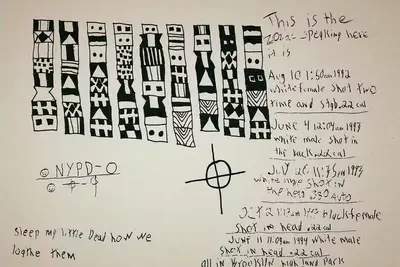 This is the
speaking here
it is
Aug 10 1:50am 1992
white female shot two
time and .22 cal
JUNE 4 12:04am 1993
white male shot in
the back .22 cal
white male shot in
the head .380 Auto
black female
shot in head .22 cal
JUNE 11 11:09am white male
shot in head .22 cal
all in Brooklyn highland Park
NYPD-0
Sleep my little Dead how we
loathe them